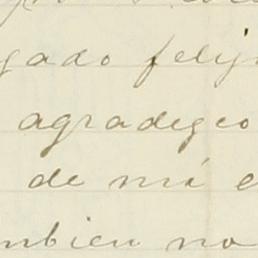 gado feliz
agradezco
de mi e
mbien no